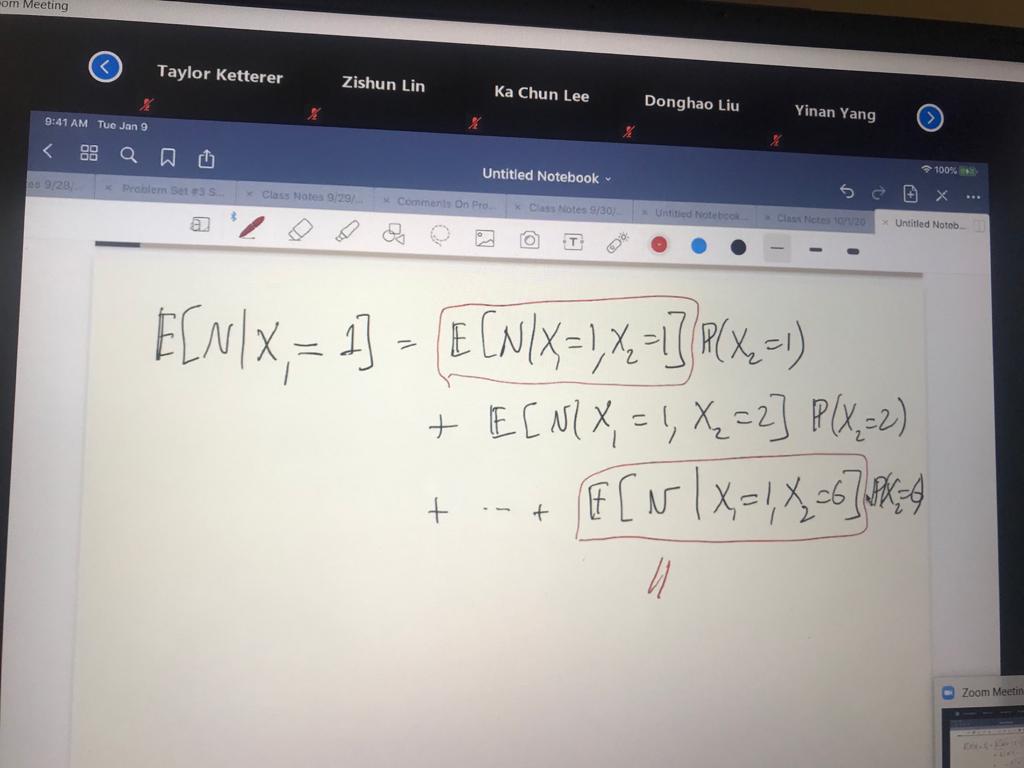 om Meeting
Taylor Ketterer Zishun Lin Ka Chun Lee Donghao Liu Yinan Yang
9:41 AM Tue Jan 9
100%
Untitled Notebook
es 9/28/... × Problem Set #3 S... × Class Notes 9/29/... × Comments On Pro... × Class Notes 9/30/... × Untitled Notebook... × Class Notes 10/1/20 × Untitled Noteb...
T
E[N|X₁=1] = E[N|X₁=1,X₂=1] P(X₂=1)
+ E[N|X₁=1, X₂=2] P(X₂=2)
+ ... + E[N|X₁=1,X₂=6] P(X₂=6)
Zoom Meetin